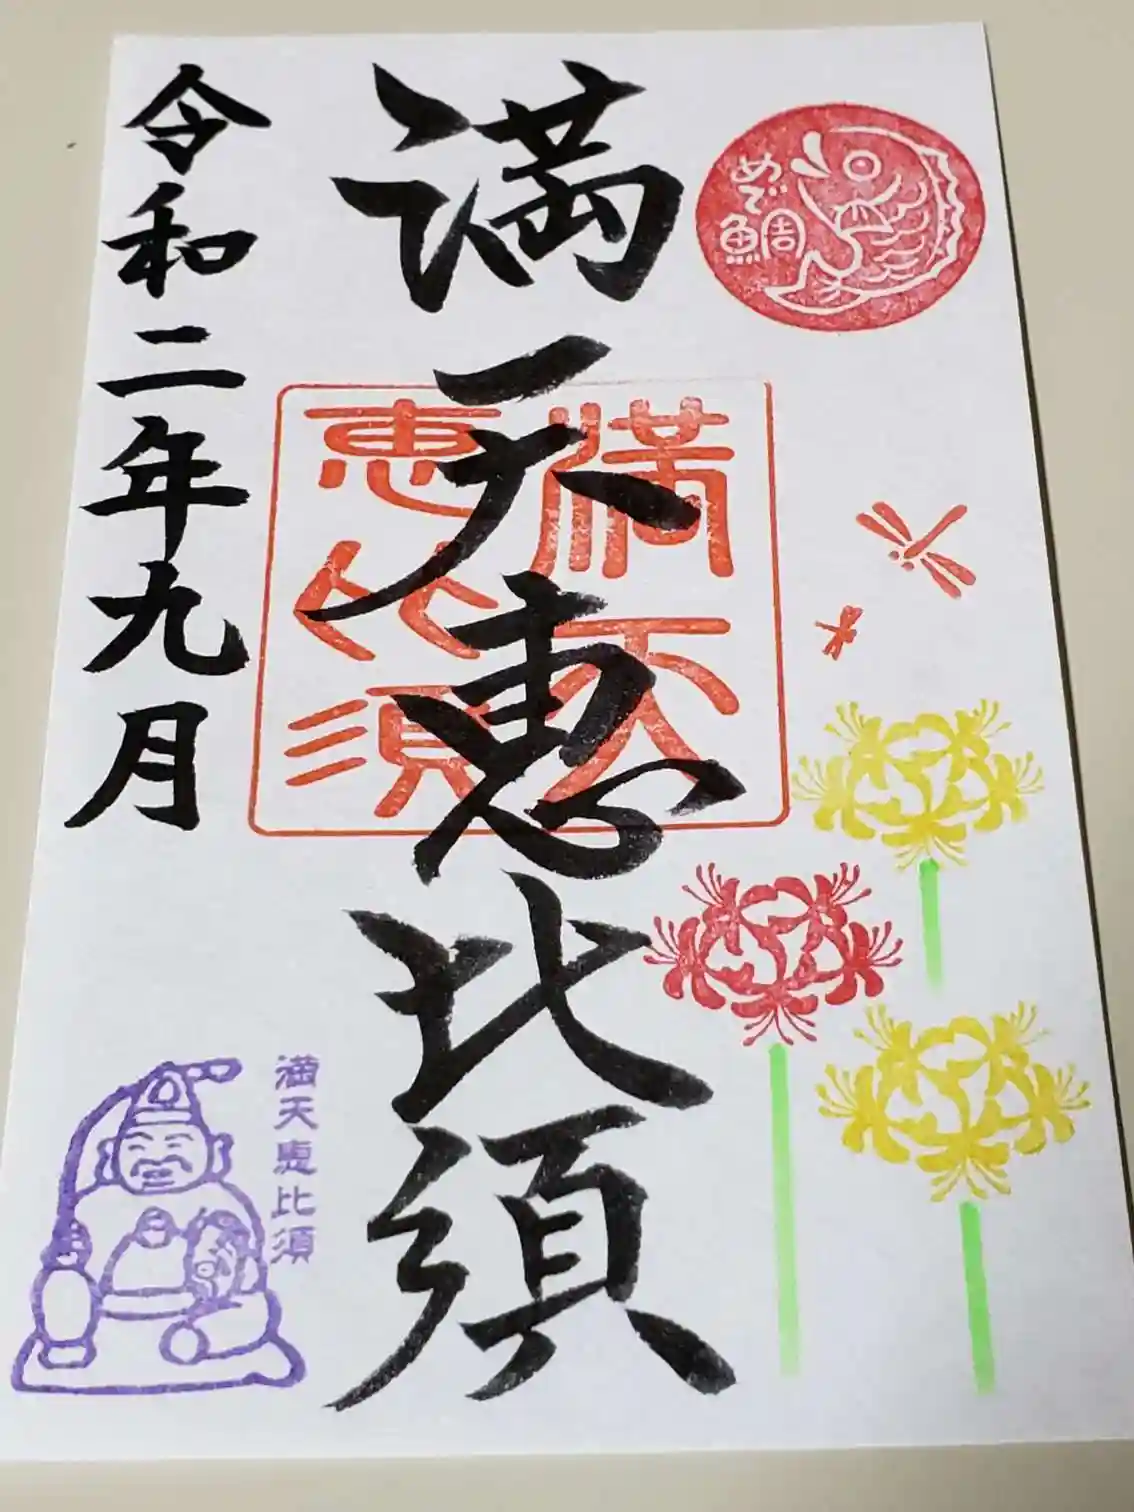 めで
鯛
満天恵比須
満天
恵比須
令和二年九月
満天恵比須